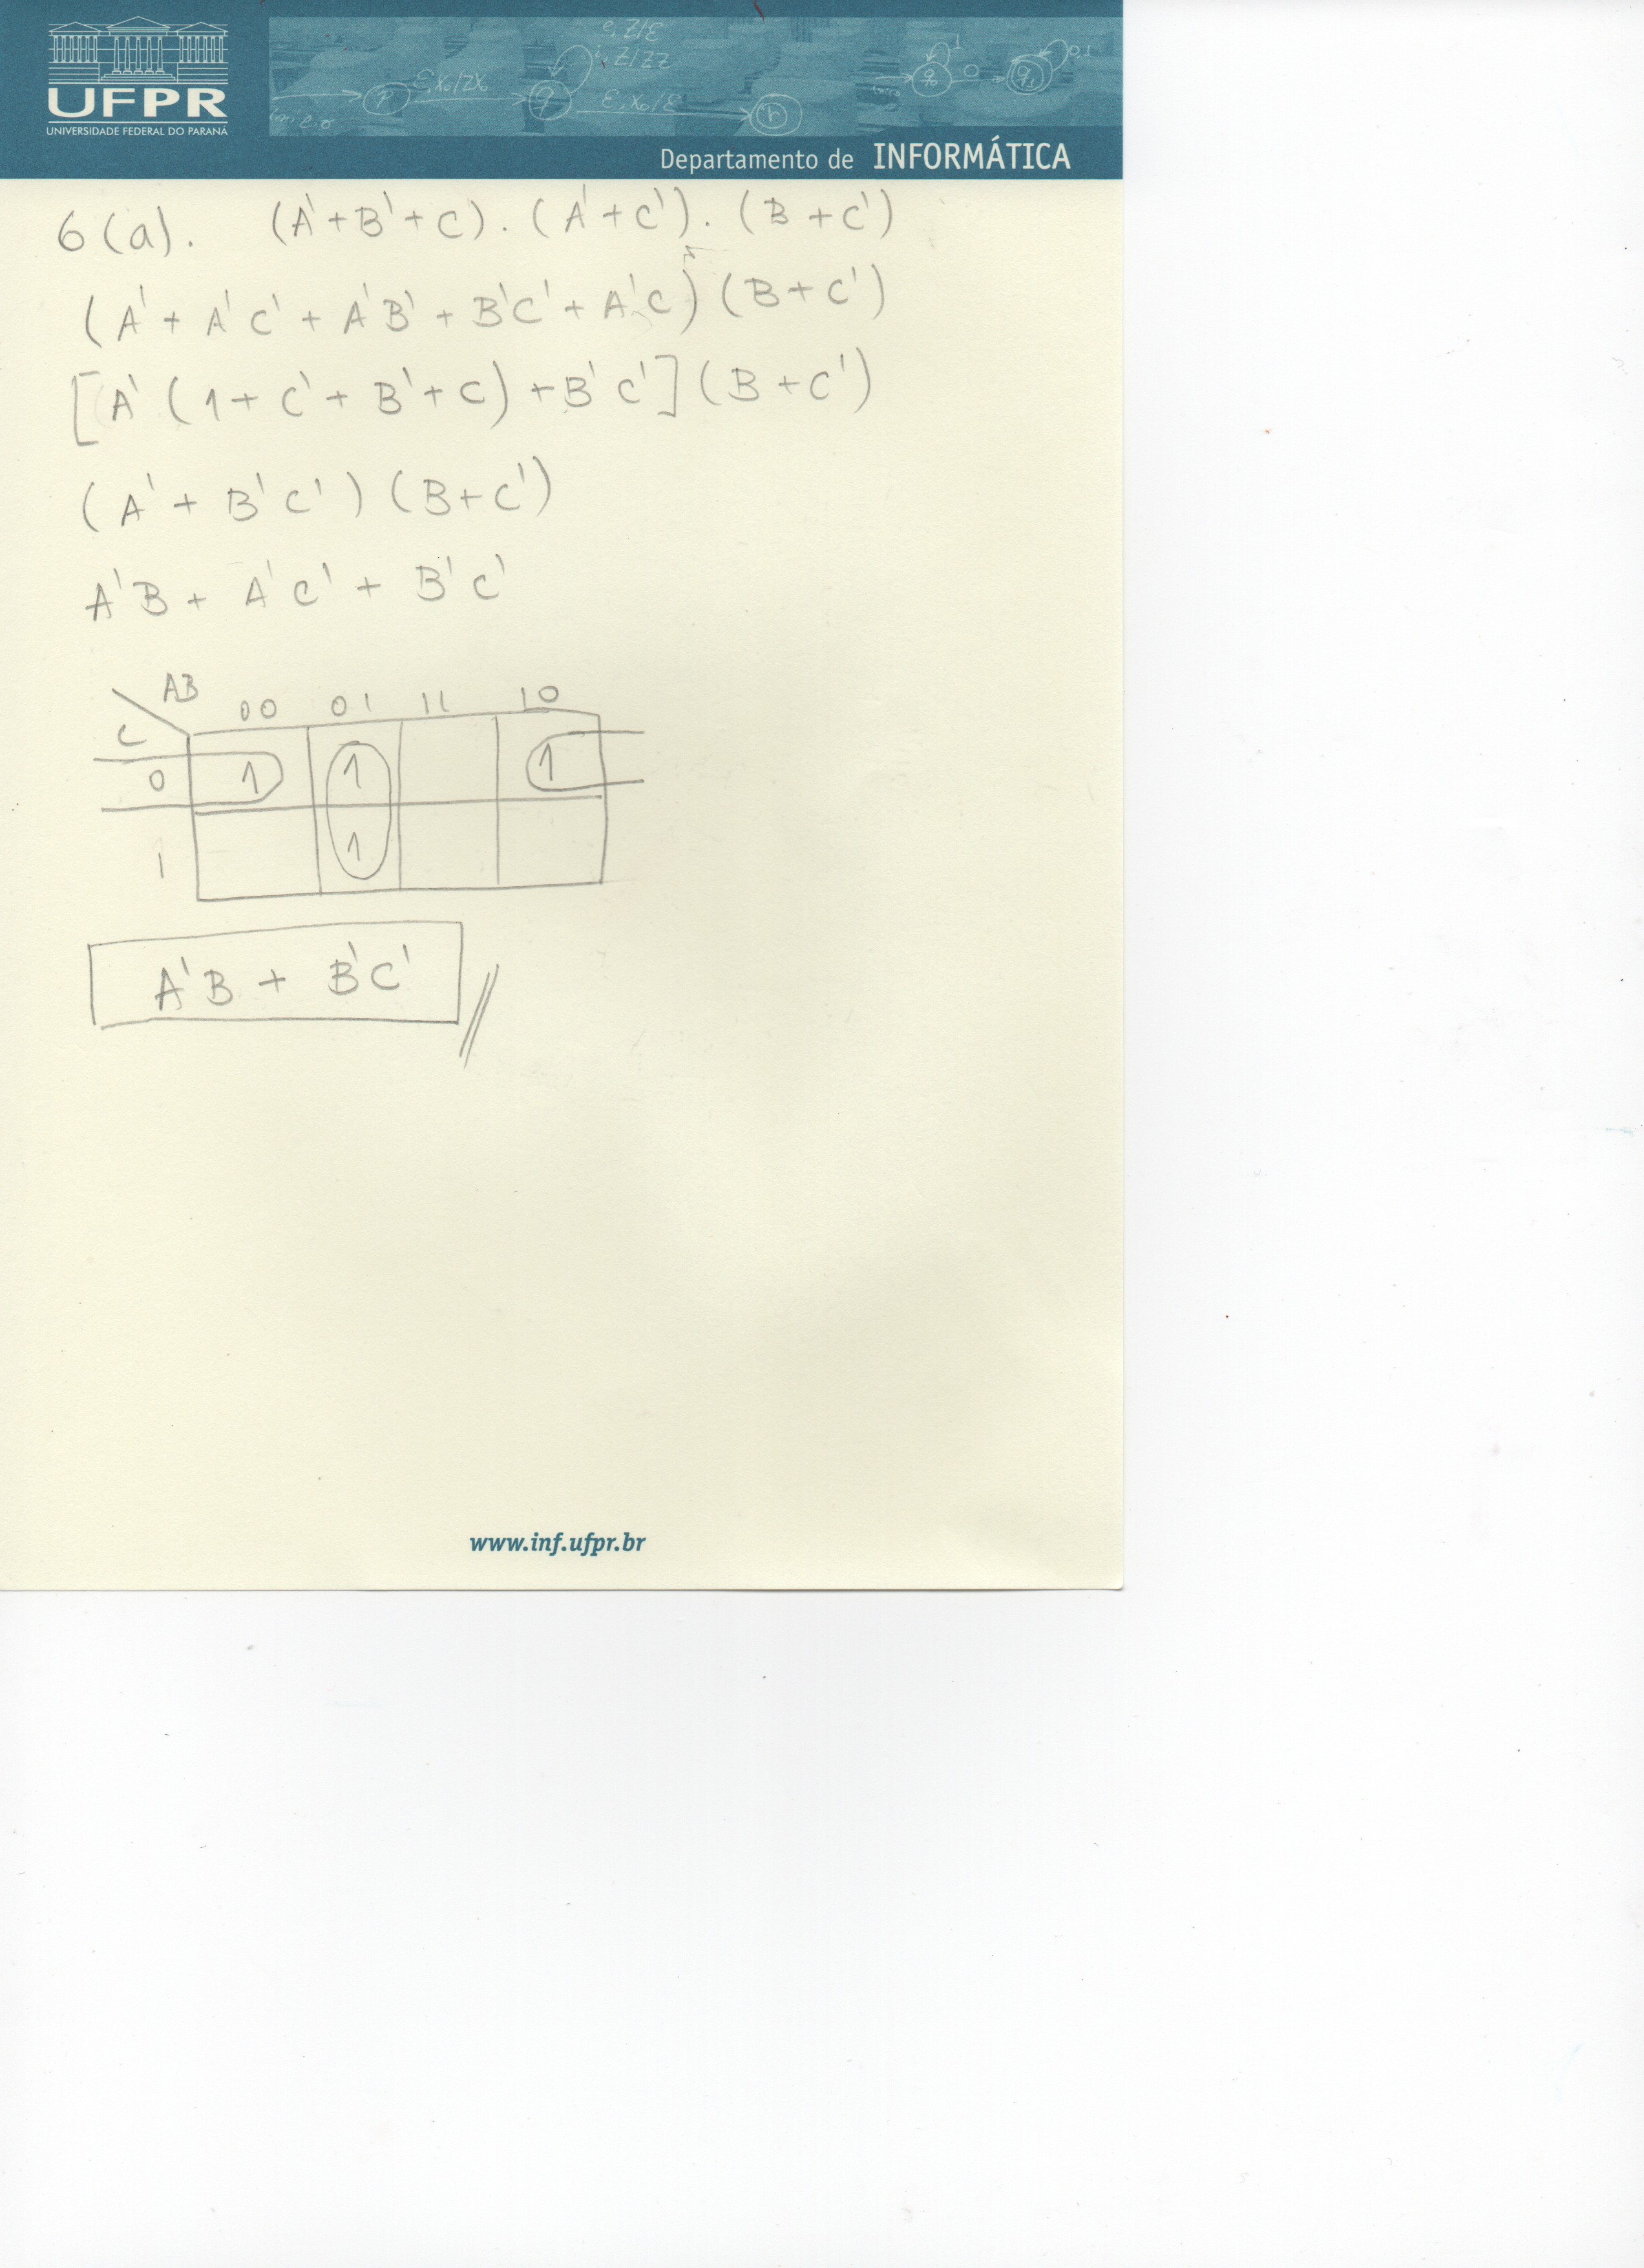 UFPR
UNIVERSIDADE FEDERAL DO PARANÁ
ε, X₀/ZX₀
e, Z/ε
i, Z/ZZ
ε, X₀/ε
p
q
r
q₀
1
0
q₁
0,1
Departamento de INFORMÁTICA
6(a). (A'+B'+C).(A'+C').(B+C')
(A'+A'C'+A'B'+B'C'+A'C)(B+C')
[A'(1+C'+B'+C)+B'C'](B+C')
(A'+B'C')(B+C')
A'B+A'C'+B'C'
AB
C 00 01 11 10
0 1 1 1
1 1
A'B + B'C'
www.inf.ufpr.br